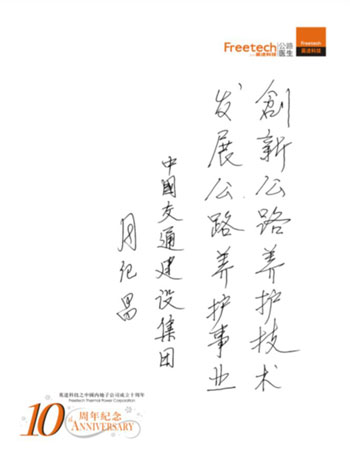 Freetech
英达科技
公路
医生
Freetech
英达科技
創新公路养护技术
发展公路养护事业
中國交通建设集团
周纪昌
英達科技之中國內地子公司成立十周年
Freetech Thermal Power Corporation
10 周年纪念
ANNIVERSARY